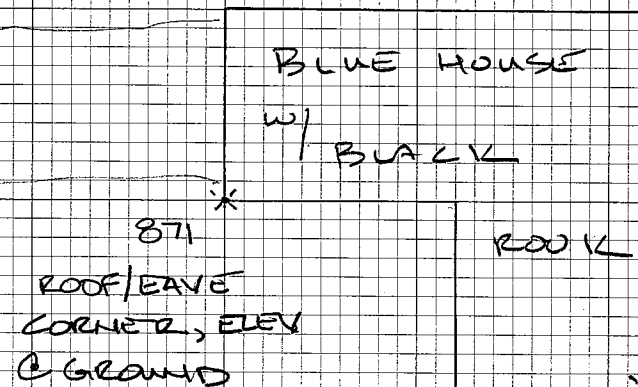 BLUE HOUSE
W/
BLACK
ROOK
871
ROOF/EAVE
CORNER, ELEV
@ GROUND